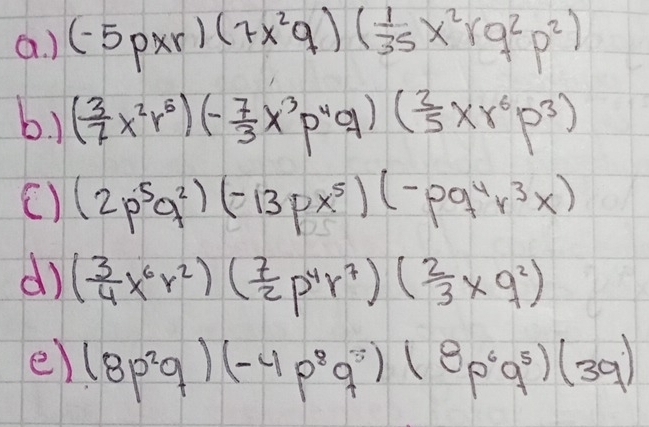 a.) (-5pxr) (7x²q) (1/35 x²rq²p²)
b.) (3/7 x²r⁵) (-7/3 x³p⁴q) (2/5 xr⁶p³)
c) (2p⁵q²) (-13px⁵) (-pq⁴r³x)
d) (3/4 x⁶r²) (7/2 p⁴r⁷) (2/3 xq²)
e) (8p²q) (-4p⁸q³) (8p⁶q⁵) (3q)